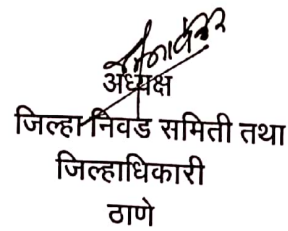 अध्यक्ष
जिल्हा निवड समिती तथा
जिल्हाधिकारी
ठाणे